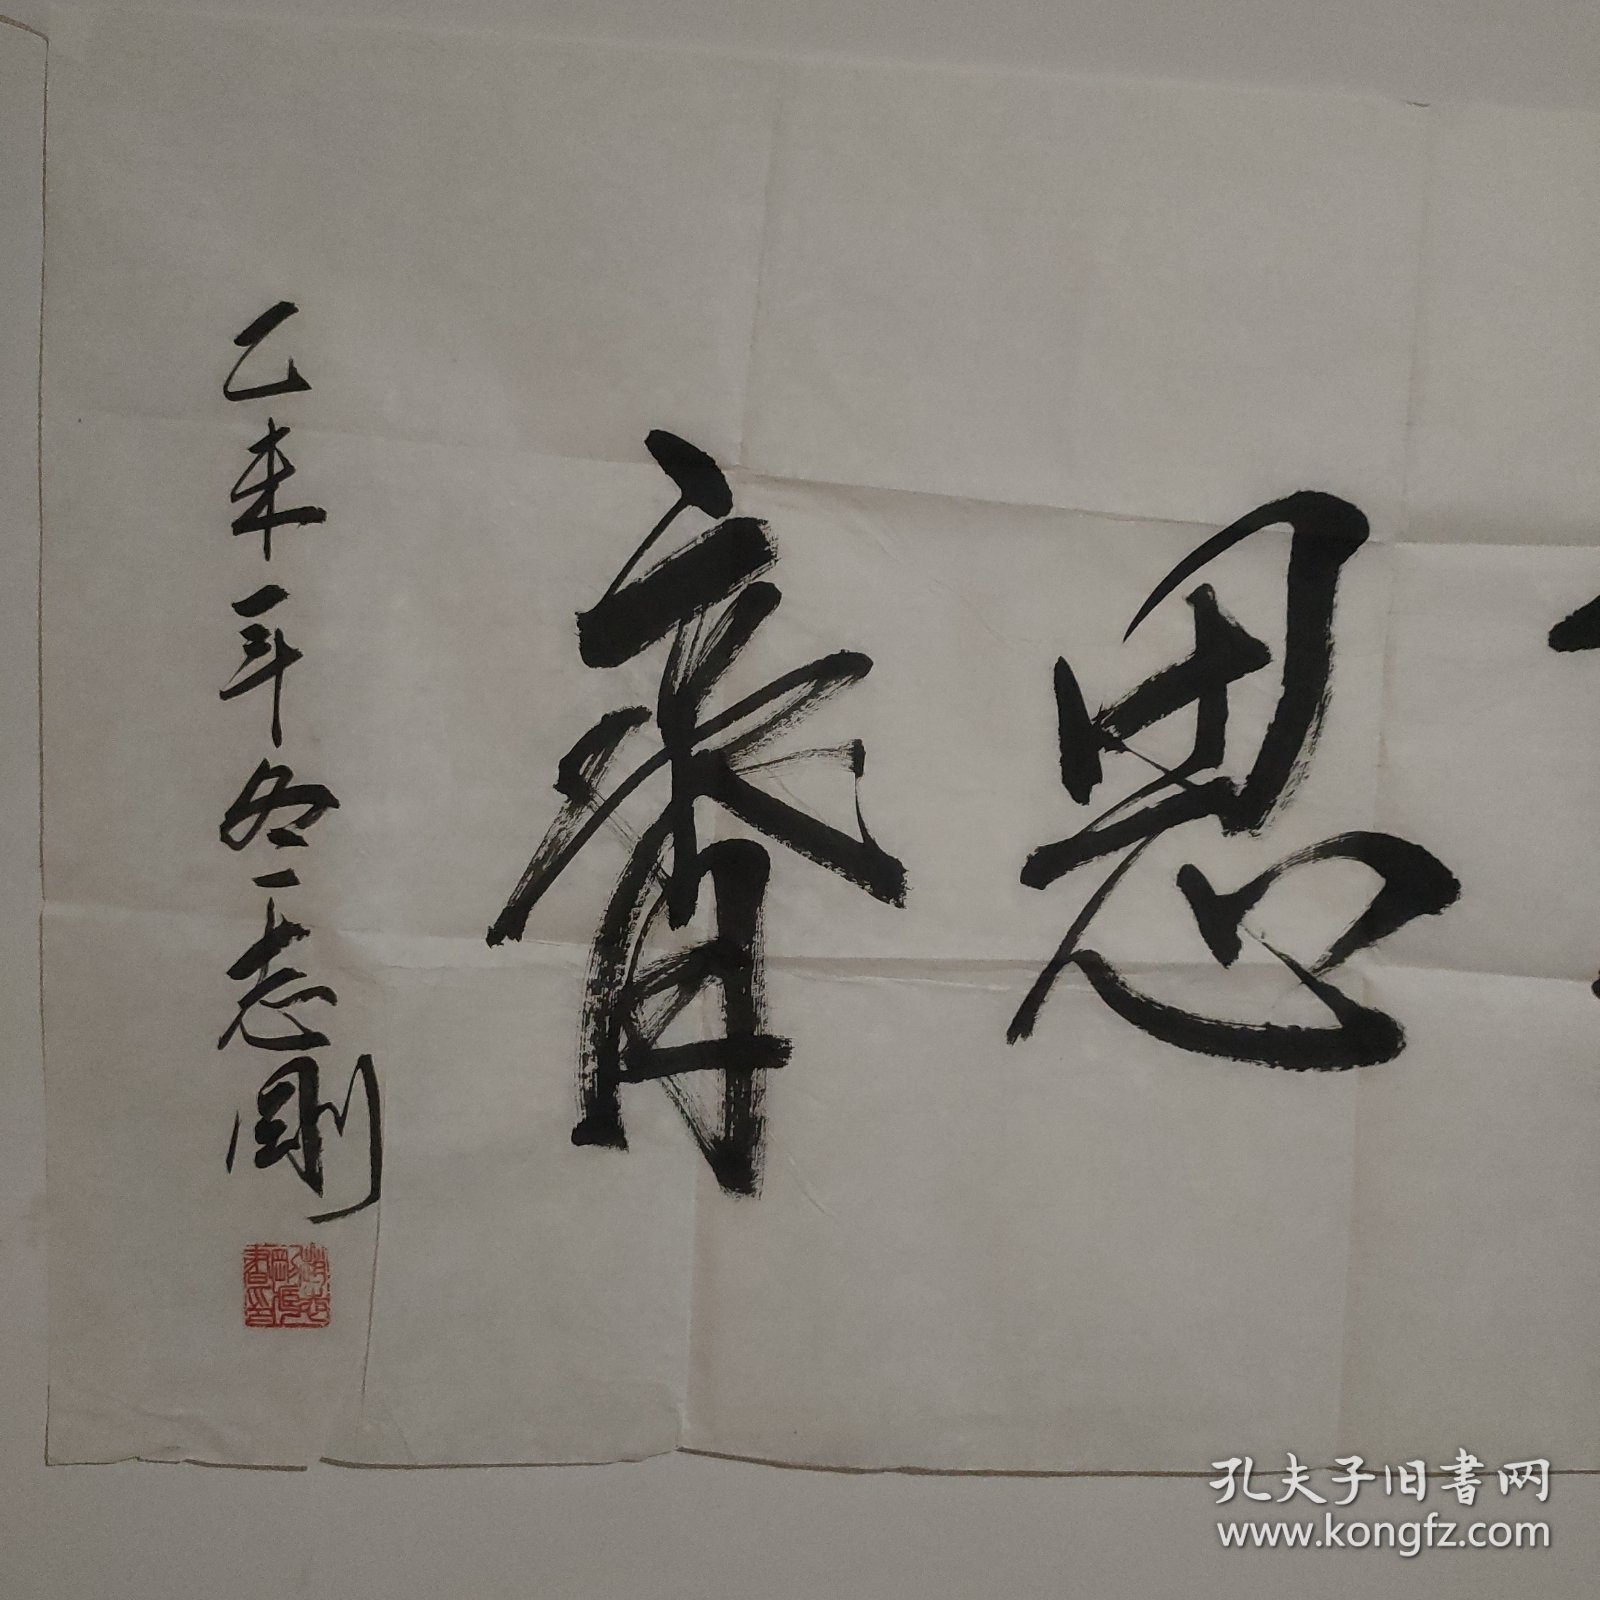 思齊
乙未年冬志剛
孔夫子旧書网
www.kongfz.com